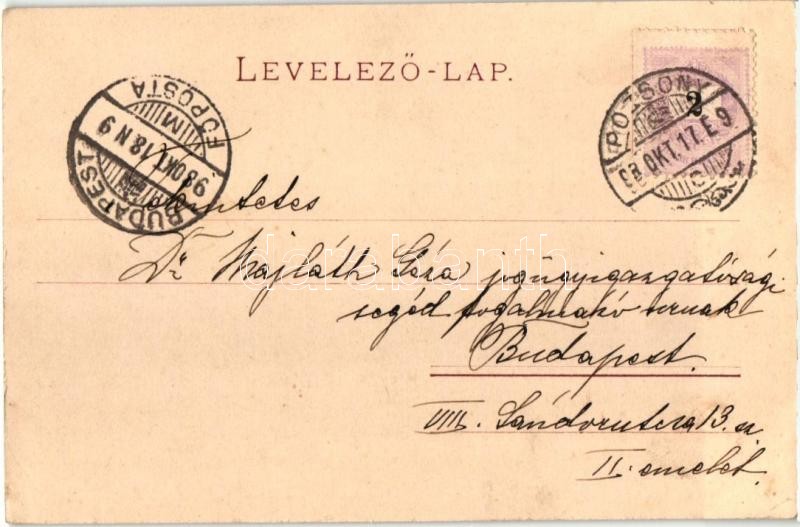 LEVELEZŐ-LAP.
2
POZSONY
98 OKT. 17. E 9
BUDAPEST
98 OKT. 18. N 9
M
FŐPOSTA
Tekintetes
Dr. Majláth Géza jogügyigazgatósági
segéd fogalmazó urnak
Budapest.
VIII. Sándorutcza 13. sz
II. emelet.
darabanth